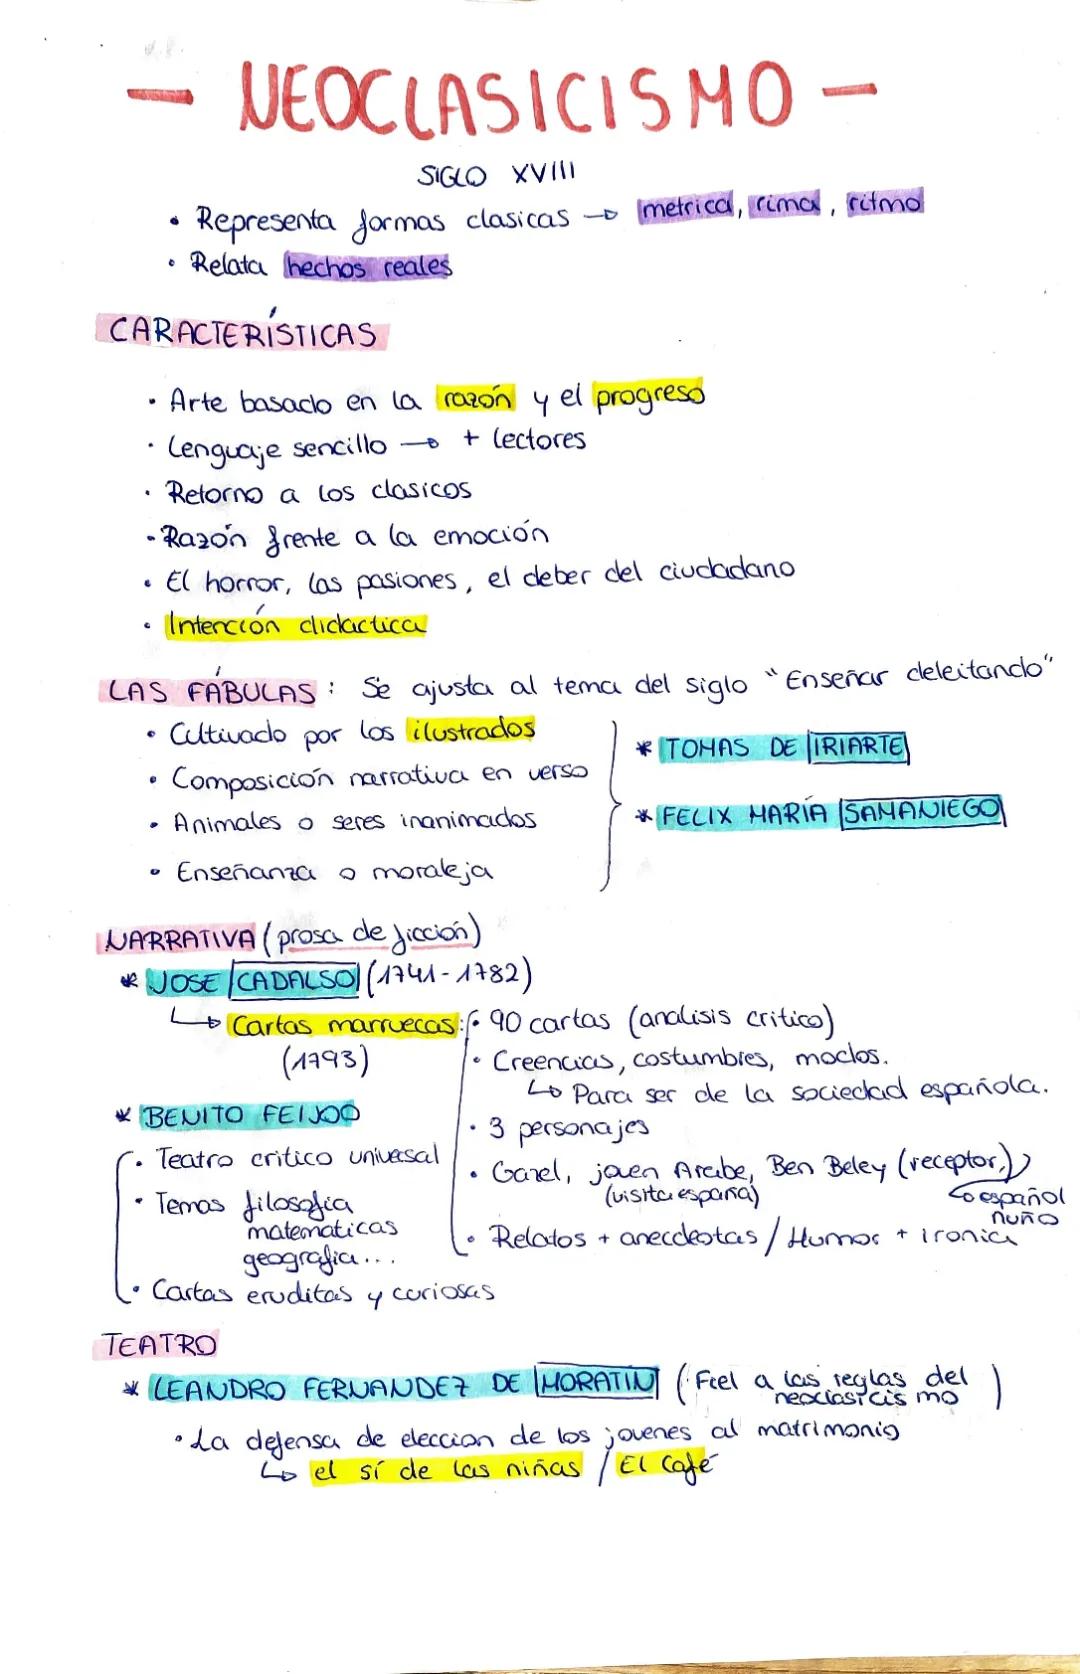 - NEOCLASICISMO -
SIGLO XVIII
• Representa formas clasicas → metrica, rima, ritmo
• Relata hechos reales
CARACTERÍSTICAS
• Arte basado en la razón y el progreso
• Lenguaje sencillo → + lectores
• Retorno a los clasicos
• Razón frente a la emoción
• El horror, las pasiones, el deber del ciudadano
• Intención didactica
LAS FÁBULAS: Se ajusta al tema del siglo "Enseñar deleitando"
• Cultivado por los ilustrados
• Composición narrativa en verso
• Animales o seres inanimados
• Enseñanza o moraleja
* TOMAS DE IRIARTE
* FELIX MARÍA SAMANIEGO
NARRATIVA (prosa de ficción)
* JOSE CADALSO (1741-1782)
↳ Cartas marruecas:
(1793)
• 90 cartas (analisis critico)
• Creencias, costumbres, modos.
↳ Para ser de la sociedad española.
• 3 personajes
• Gazel, joven Arabe, Ben Beley (receptor,)
(visita españa)
↳ español
nuño
• Relatos + anecdeotas / Humor + ironica
* BENITO FEIJOO
• Teatro critico universal
• Temas filosofia
matematicas
geografia...
• Cartas eruditas y curiosas
TEATRO
* LEANDRO FERNANDEZ DE MORATIN (Fiel a las reglas del
neoclasicismo)
• La defensa de eleccion de los jovenes al matrimonio
↳ el sí de las niñas / El Café